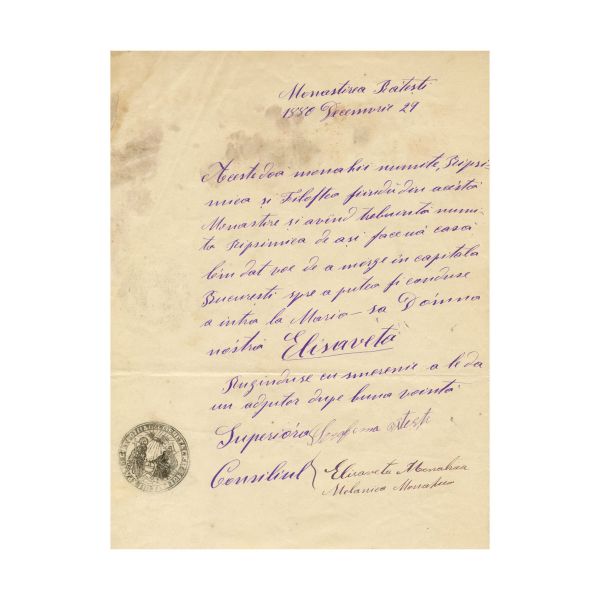 Monastirea Rătești
1880 Decemvrie 29
Aceste doa monahii numite, Ripsi-
mica și Filoftea fiindŭ din acéstă
Monastire și avînd trebuință numi-
ta Ripsimica de ași face uă casă
leam dat voe de a merge în capitala
București spre a putea fi conduse
a intra la Maria-sa Dómna
nóstră Elisaveta
Rugînduse cu smerenie a le da
un adjutor dupe buna voință
Superióra
Consiliul { Elisaveta Monahia
Melania Monahia